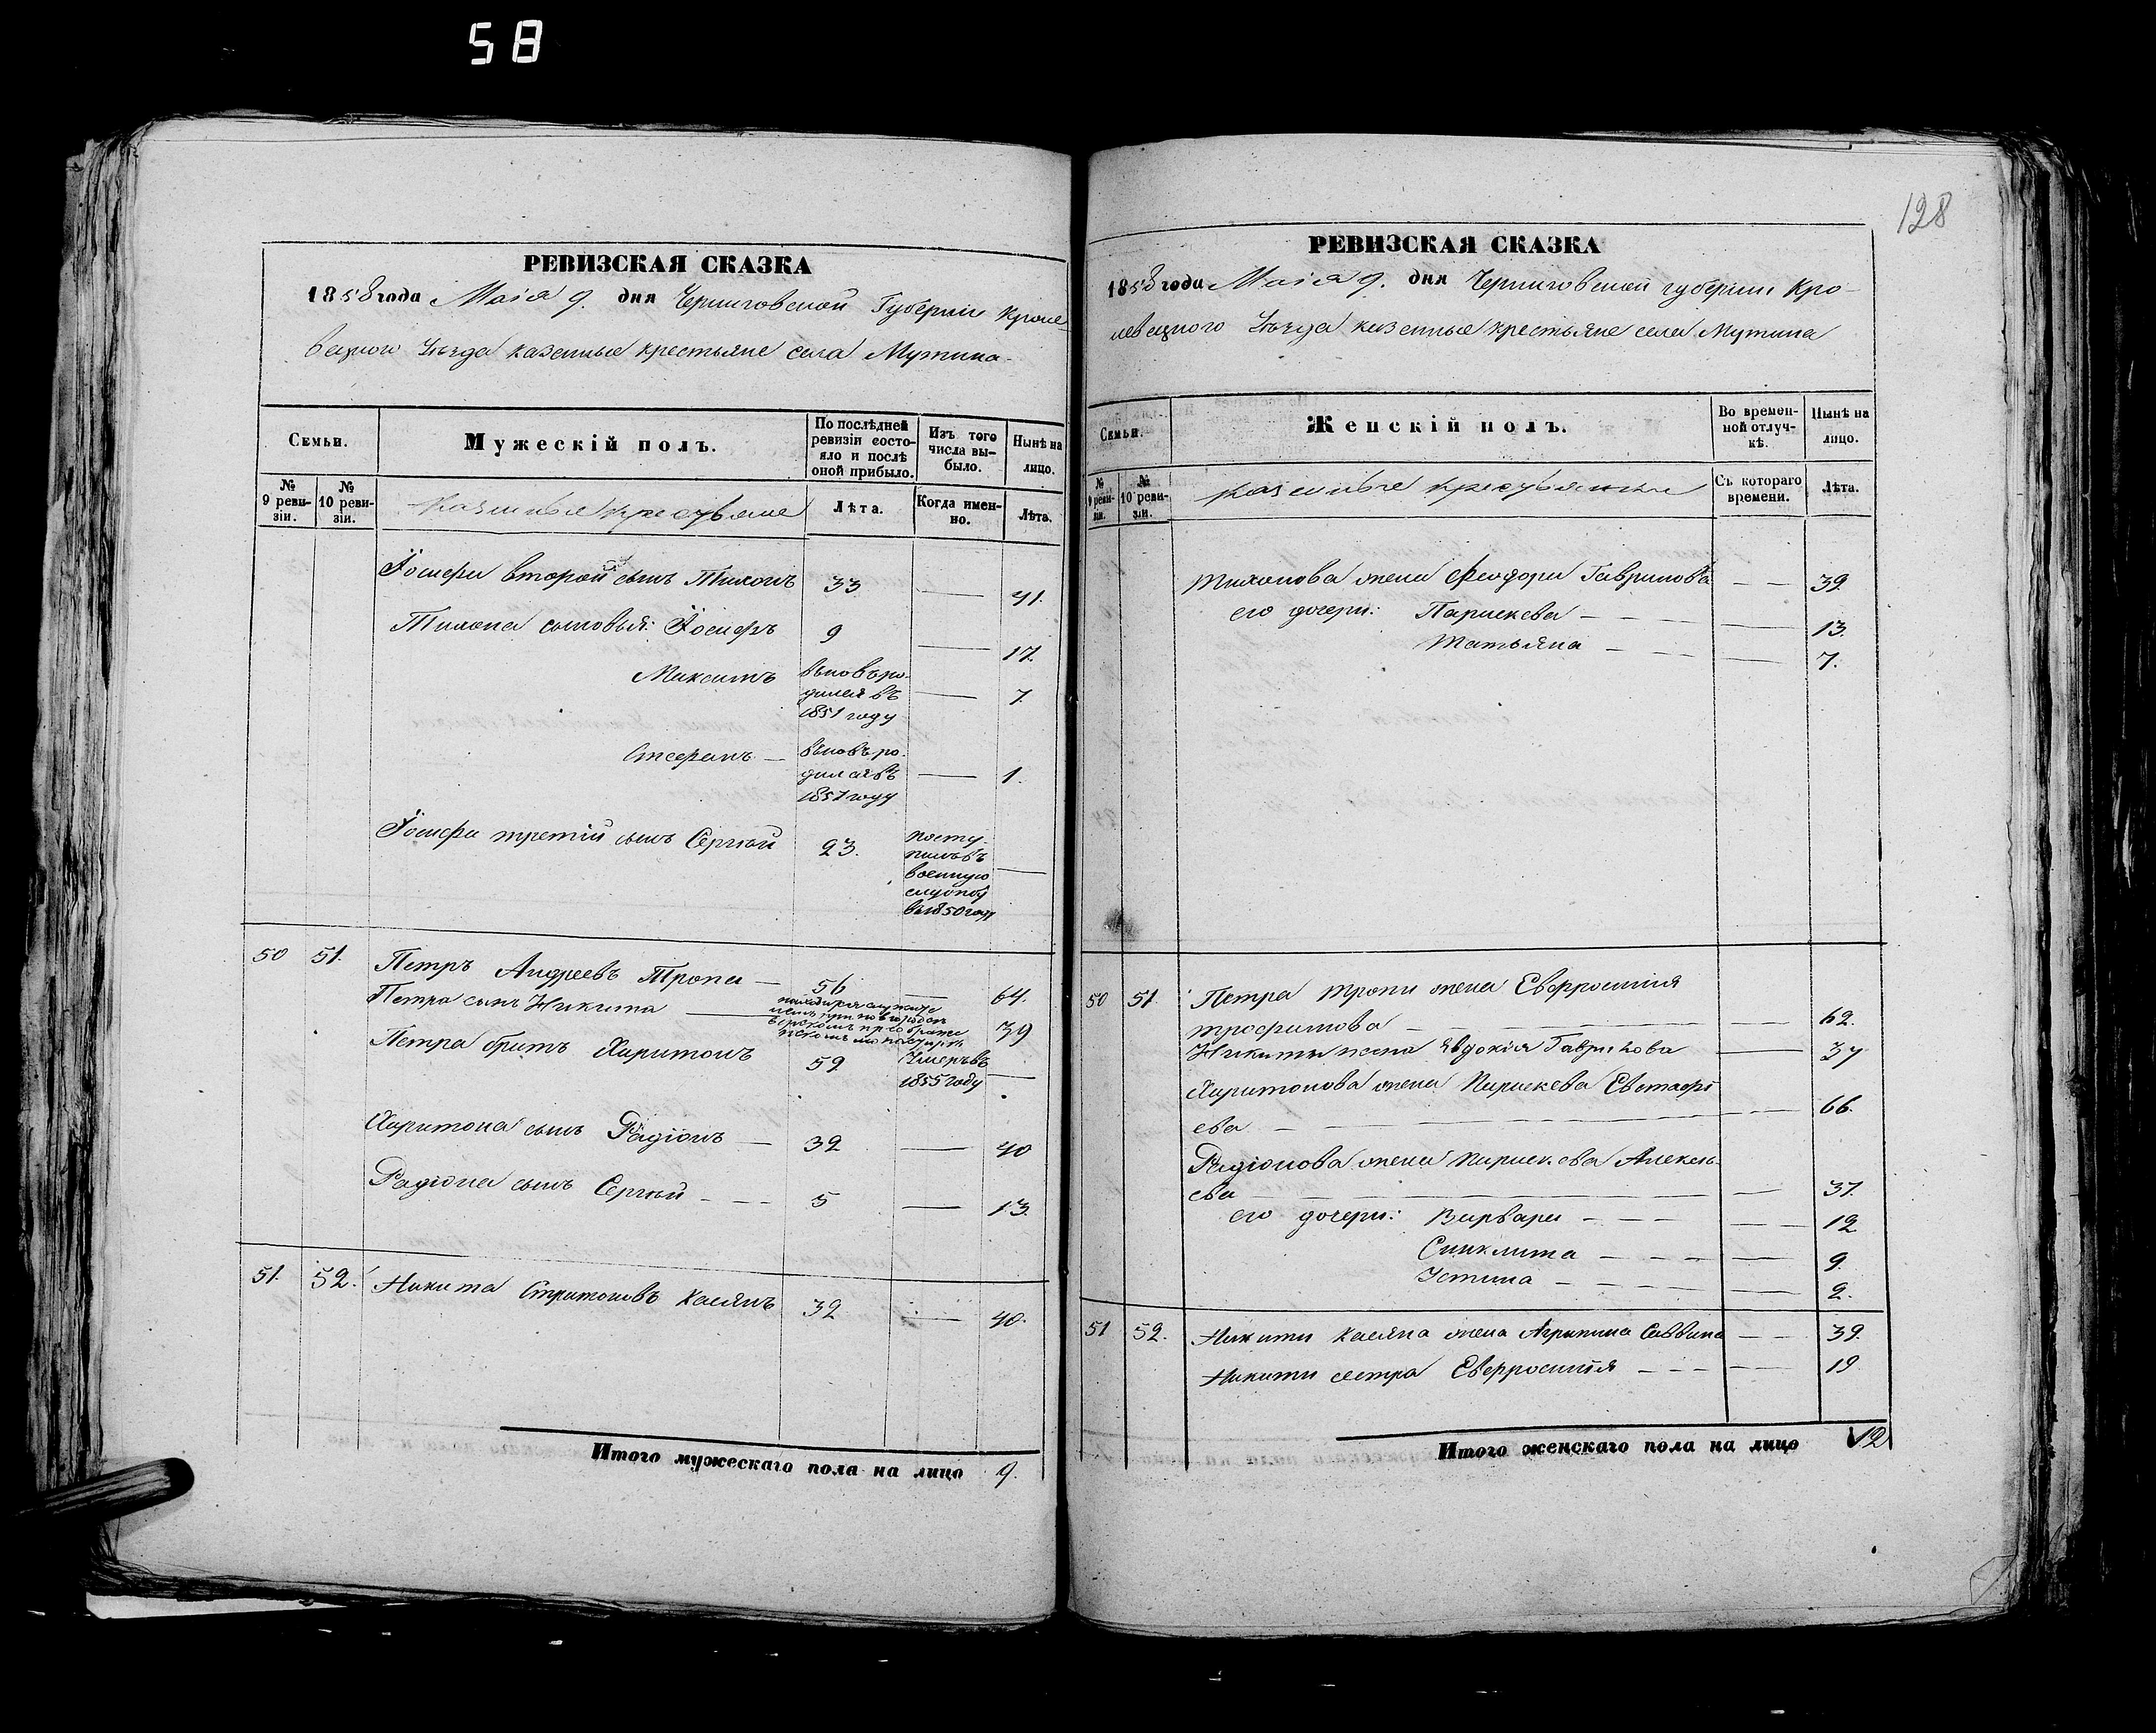 58
128
РЕВИЗСКАЯ СКАЗКА
1858 года Маія 9. дня Черниговской Губерніи Кроле-
вецкого Уѣзда казенные крестьяне села Мутина.
Семьи.
Мужескій полъ.
По послѣдней ревизіи состо-яло и послѣ оной прибыло.
Изъ того числа вы-было.
Нынѣ на лицо.
№ 9 реви-зіи.
№ 10 реви-зіи.
Казенные крестьяне
Лѣта.
Когда имен-но.
Лѣта.
Іосифа второй сынъ Тихонъ 33 — 41.
Тихона сыновья: Іосифъ 9 — 17.
Максимъ вновь ро-
дился въ — 7
1851 году
Стефанъ — вновь ро-
дился въ — 1.
1857 году
Іосифа третій сынъ Сергѣй 23. посту-
пилъ въ
военную —
службу
въ 1850 году
50 51. Петръ Андреевъ Тропа — 56 — 64.
Петра сынъ Никита — находится 39
Петра братъ Харитонъ 59 Умеръ въ
1855 году —
Харитона сынъ Радіонъ — 32 — 40
Радіона сынъ Сергѣй - — — 5 — 13.
51. 52. Никита Стратоновъ Касянъ 32 — 40.
Итого мужескаго пола на лицо 9.
РЕВИЗСКАЯ СКАЗКА
1858 года Маія 9. дня Черниговской губерніи Кро-
левецкого Уѣзда казенные крестьяне села Мутина
Семьи.
Женскій полъ.
Во времен-ной отлуч-кѣ.
Нынѣ на лицо.
№ 9 реви-зіи.
№ 10 реви-зіи.
Казенные крестьянки
Съ котораго времени.
Лѣта.
Тихонова жена Феодора Гаврилова — — 39.
его дочери: Параскева — — — 13.
Татьяна — — — 7.
50 51 Петра Тропи жена Евфросинія
Трофимова — — 62.
Никиты жена Явдокія Гаврилова — 37
Харитонова жена Параскева Евстафі
ева — — — 66.
Радіонова жена Параскева Алексѣ-
ева — — 37.
его дочери: Варвара — — — 12
Синклита — — — 9.
Устина — — — 2.
51 52. Никити Касяна жена Агрипина Саввина — — 39.
Никити сестра Евфросинія — — — 19
Итого женскаго пола на лицо 12